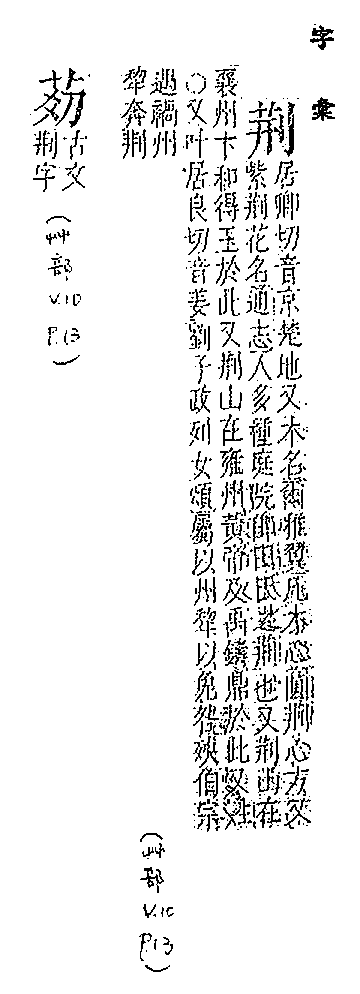 字彙
荆
居卿切音京楚地又木名爾雅翼庶木心圓荆心方又
紫荆花名通志人多種庭院即田氏之荆也又荆山在
襄州卞和得玉於此又荆山在雍州黄帝及禹鑄鼎於此又姓
○又叶居良切音姜劉子政列女頌屬以州犂以免咎殃伯宗
遇禍州
犂奔荆
(艸部
V.10
P.13)
𦮟
古文
荆字
(艸部
V.10
P.13)